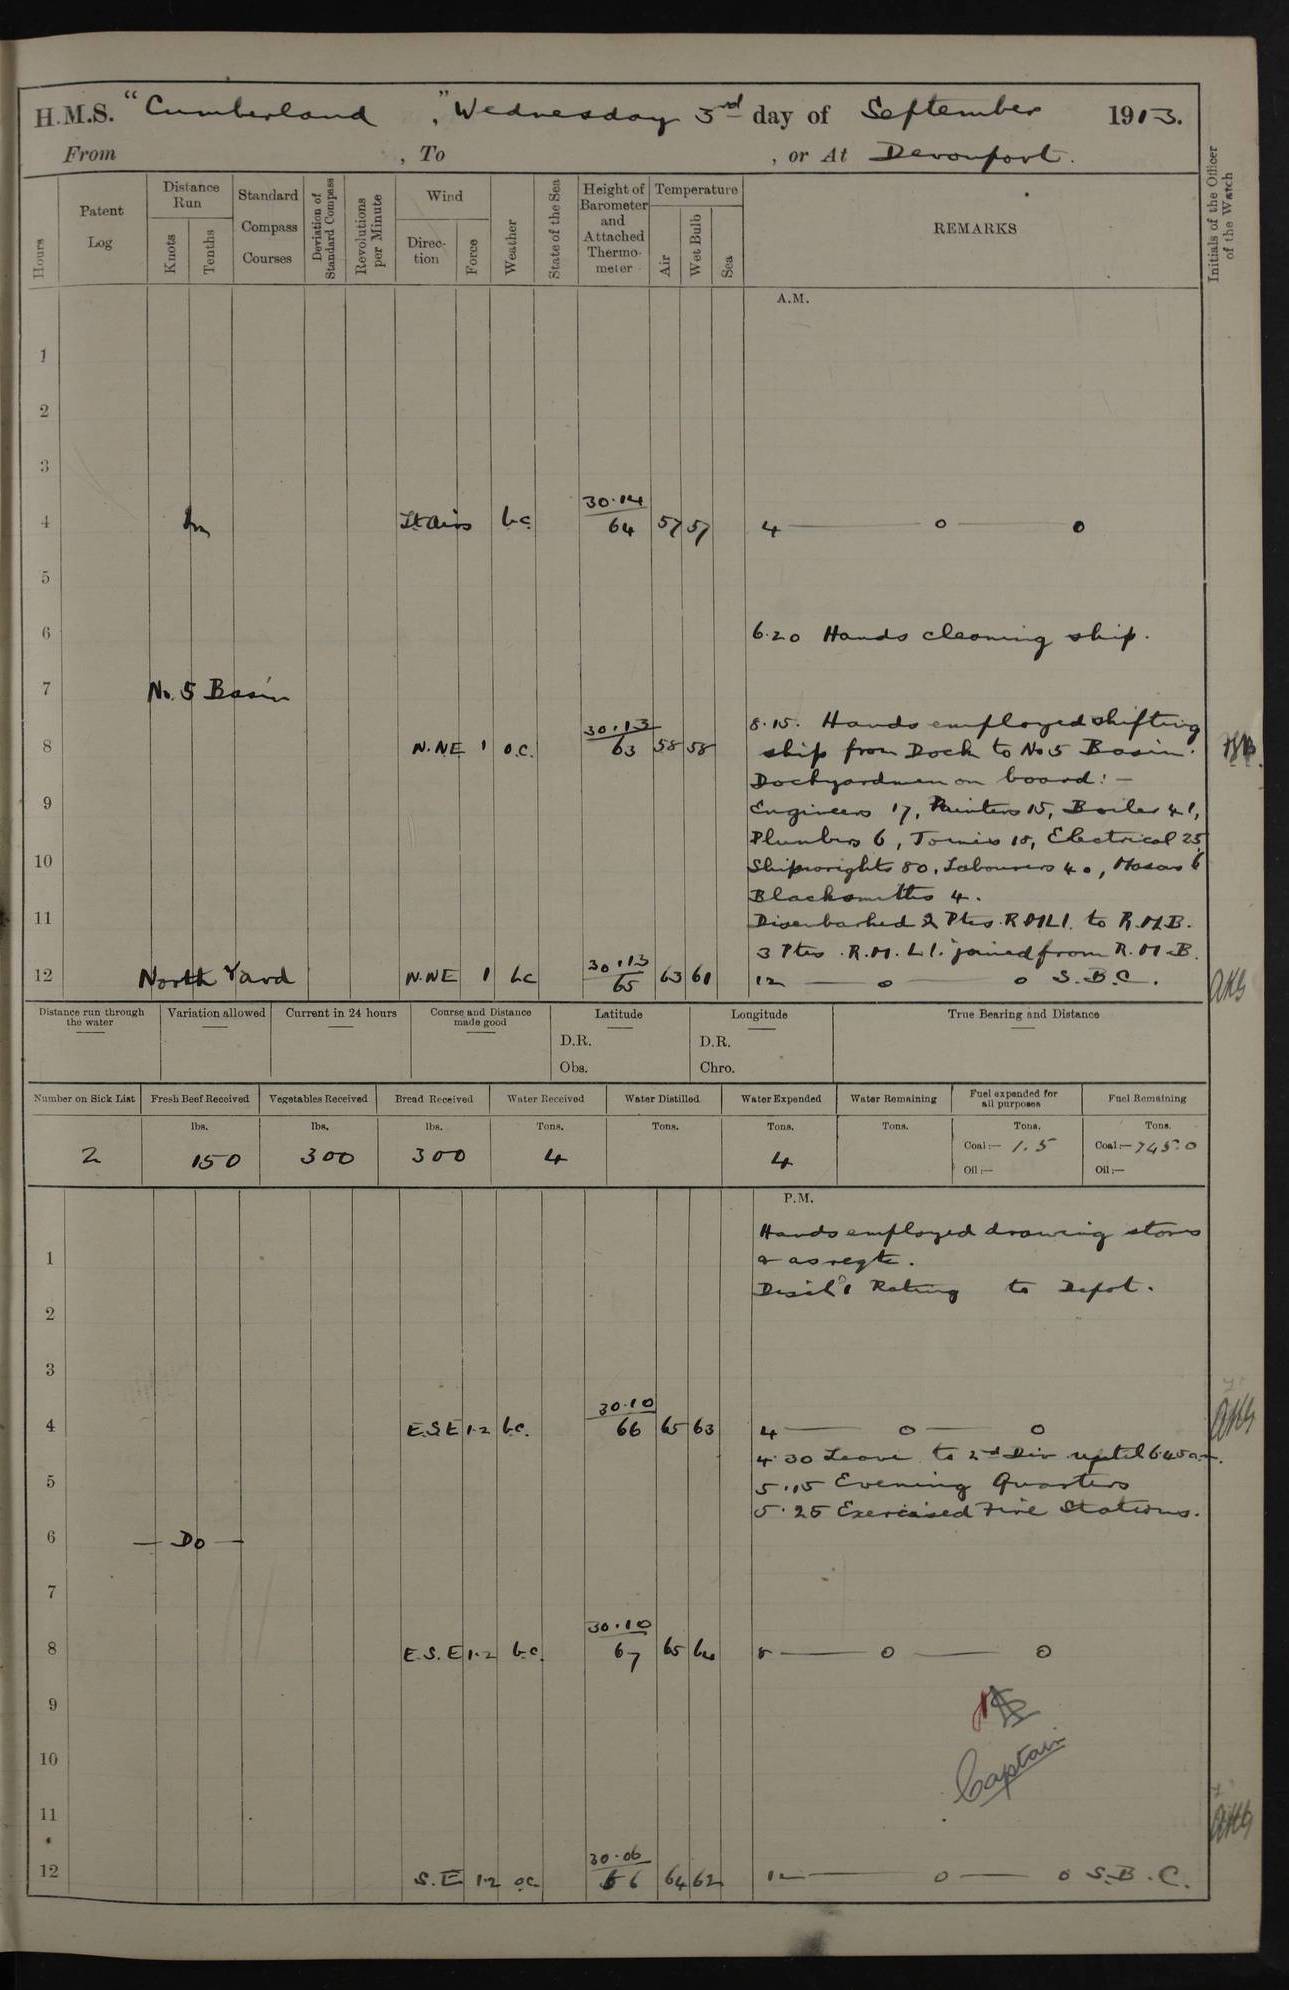 H.M.S. "Cumberland", Wednesday 3rd day of September 1913.
From , To , or At Devonport.
Hours
Patent Log
Distance Run
Knots
Tenths
Standard Compass Courses
Deviation of Standard Compass
Revolutions per Minute
Wind
Direction
Force
Weather
State of the Sea
Height of Barometer and Attached Thermometer
Temperature
Air
Wet Bulb
Sea
REMARKS
Initials of the Officer of the Watch
A.M.
1
2
3
4 In Lt Airs b.c. 30.14 64 57 57 4 — o — o
5
6 6.20 Hands cleaning ship.
7 No. 5 Basin
8.15. Hands employed shifting
8 N.NE 1 o.c. 30.13 63 58 58 ship from Dock to No 5 Basin.
Dockyardmen on board: —
9 Engineers 17, Painters 15, Boiler 41,
Plumbers 6, Joiners 18, Electrical 25
10 Shipwrights 80, Labourers 40, Masons 6
Blacksmiths 4.
11 Disembarked 2 Ptes. R.M.L.I. to R.M.B.
3 Ptes. R.M.L.I. joined from R.M.B.
12 North Yard N.NE 1 bc 30.13 65 63 61 12 — o — o S.B.C.
Distance run through the water
Variation allowed
Current in 24 hours
Course and Distance made good
Latitude
Longitude
True Bearing and Distance
D.R. D.R.
Obs. Chro.
Number on Sick List
Fresh Beef Received
Vegetables Received
Bread Received
Water Received
Water Distilled
Water Expended
Water Remaining
Fuel expended for all purposes
Fuel Remaining
lbs. lbs. lbs. Tons. Tons. Tons. Tons. Tons. Tons.
2 150 300 300 4 4 Coal:— 1.5 Coal:— 745.0
Oil:— Oil:—
P.M.
Hands employed drawing stores
1 & as reqte.
Disch'd 1 Rating to Depot.
2
3
4 E.S.E 1.2 b.c. 30.10 66 65 63 4 — o — o
4.30 Leave to 2nd Div until 6.45 am.
5 5.15 Evening Quarters
5.25 Exercised Fire Stations.
6 — Do —
7
8 E.S.E 1.2 b.c. 30.10 67 65 64 8 — o — o
9
10 Captain
11
12 S.E 1.2 oc 30.06 66 64 62 12 — o — o S.B.C.